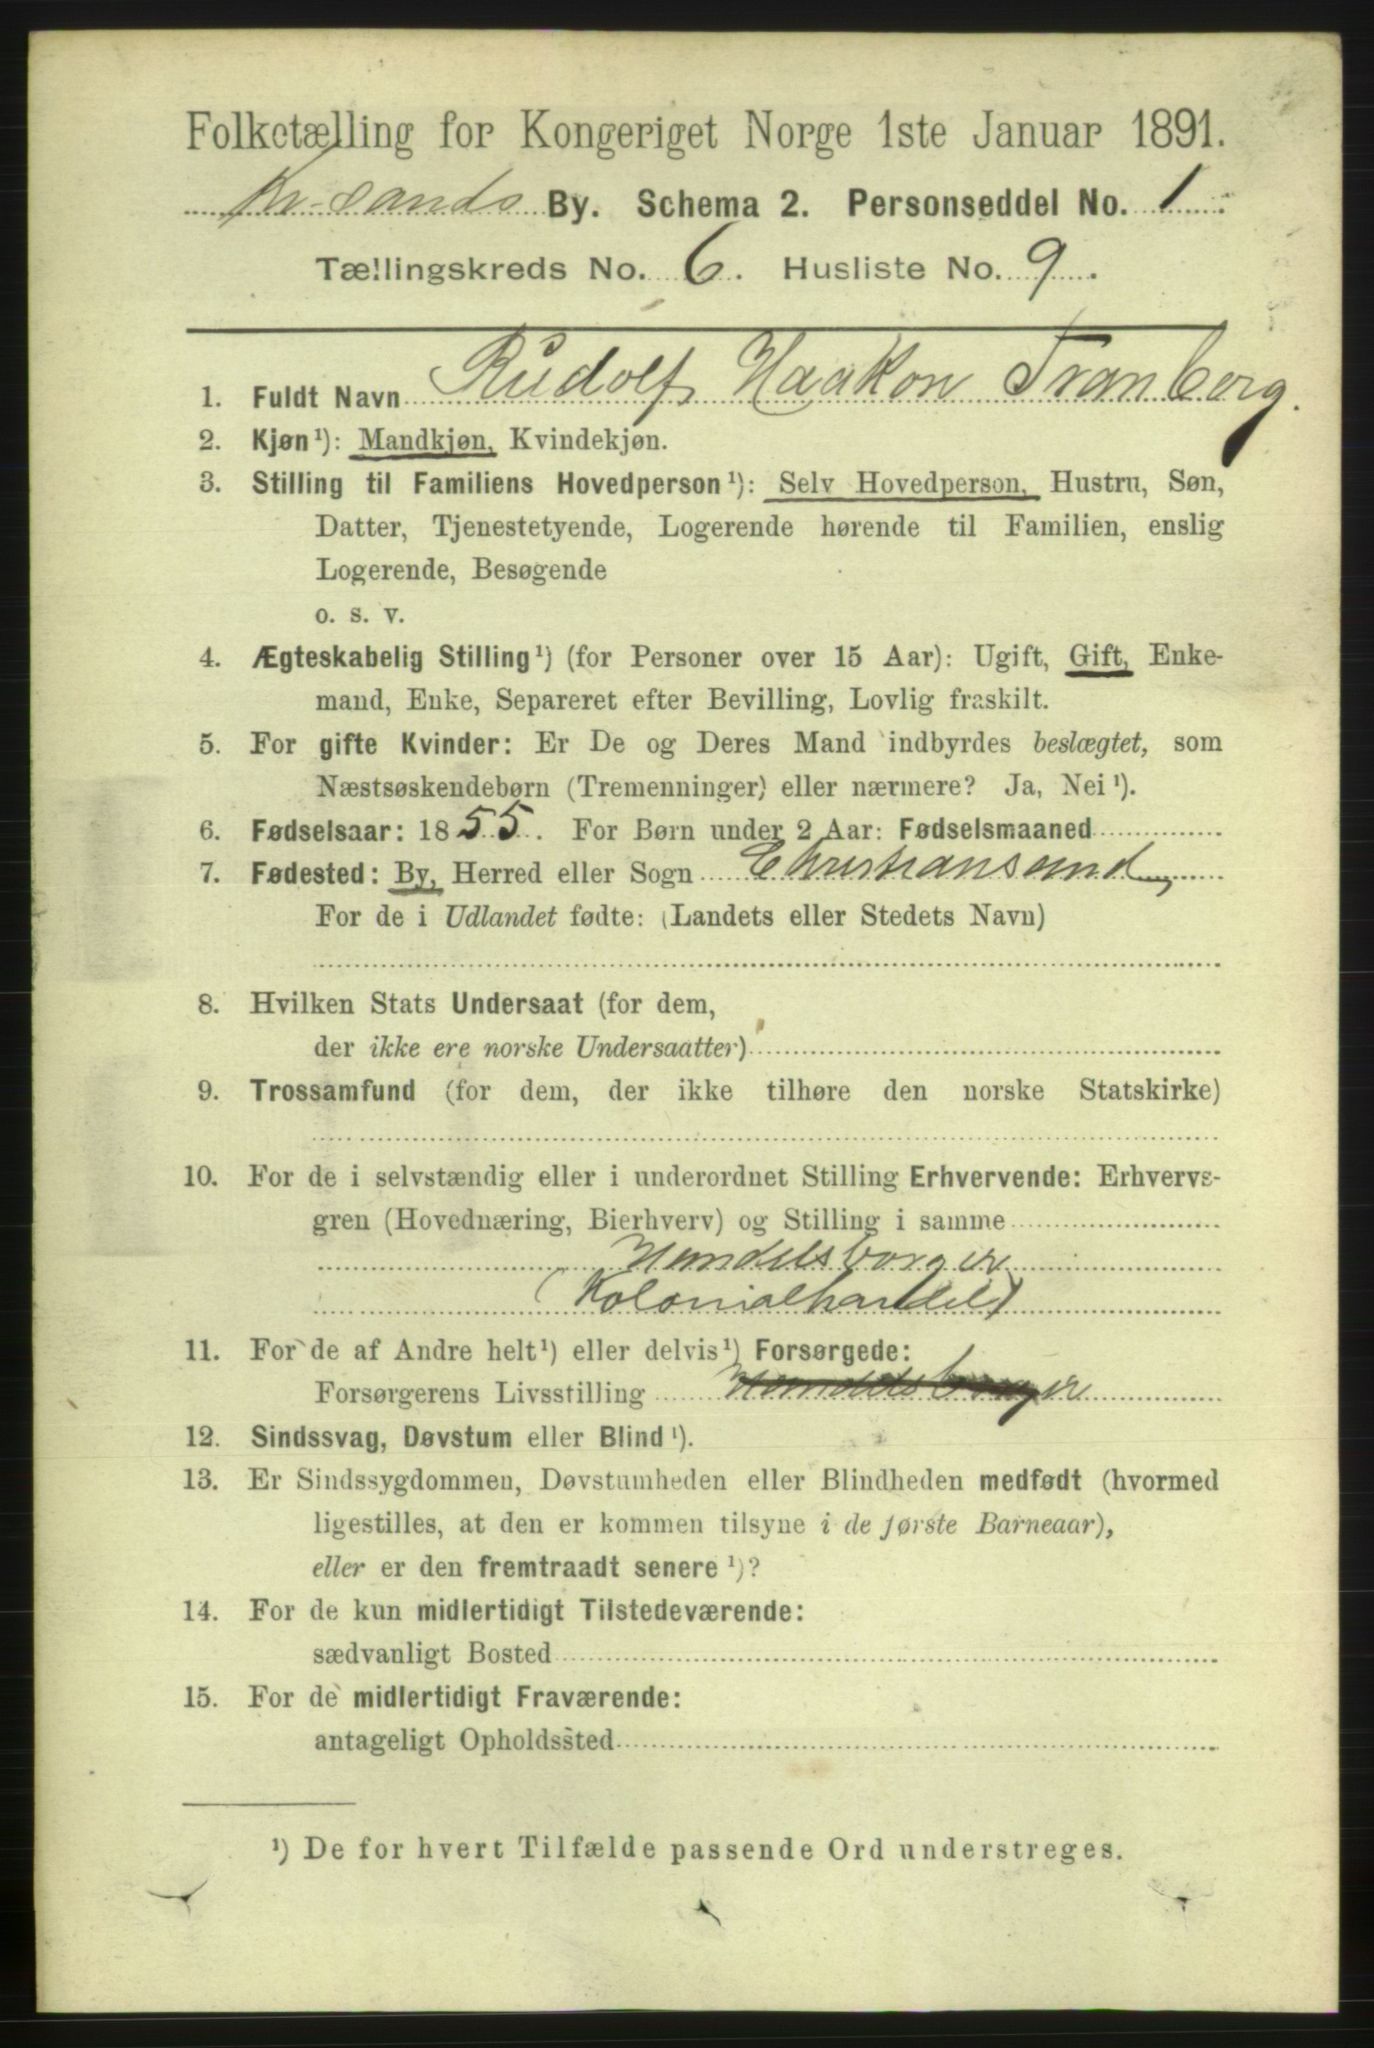 Folketælling for Kongeriget Norge 1ste Januar 1891.
Kr.sands By. Schema 2. Personseddel No. 1.
Tællingskreds No. 6. Husliste No. 9.
1. Fuldt Navn Rudolf Haakon Tranberg.
2. Kjøn¹): Mandkjøn, Kvindekjøn.
3. Stilling til Familiens Hovedperson¹): Selv Hovedperson, Hustru, Søn,
Datter, Tjenestetyende, Logerende hørende til Familien, enslig
Logerende, Besøgende
o. s. v.
4. Ægteskabelig Stilling¹) (for Personer over 15 Aar): Ugift, Gift, Enke-
mand, Enke, Separeret efter Bevilling, Lovlig fraskilt.
5. For gifte Kvinder: Er De og Deres Mand indbyrdes beslægtet, som
Næstsøskendebørn (Tremenninger) eller nærmere? Ja, Nei¹).
6. Fødselsaar: 1855. For Børn under 2 Aar: Fødselsmaaned
7. Fødested: By, Herred eller Sogn Christiansand,
For de i Udlandet fødte: (Landets eller Stedets Navn)
8. Hvilken Stats Undersaat (for dem,
der ikke ere norske Undersaatter)
9. Trossamfund (for dem, der ikke tilhøre den norske Statskirke)
10. For de i selvstændig eller i underordnet Stilling Erhvervende: Erhvervs-
gren (Hovednæring, Bierhverv) og Stilling i samme
Handelsborger
(Kolonialhandel)
11. For de af Andre helt¹) eller delvis¹) Forsørgede:
Forsørgerens Livsstilling Handelsborger
12. Sindssvag, Døvstum eller Blind¹).
13. Er Sindssygdommen, Døvstumheden eller Blindheden medfødt (hvormed
ligestilles, at den er kommen tilsyne i de første Barneaar),
eller er den fremtraadt senere¹)?
14. For de kun midlertidigt Tilstedeværende:
sædvanligt Bosted
15. For de midlertidigt Fraværende:
antageligt Opholdssted
¹) De for hvert Tilfælde passende Ord understreges.